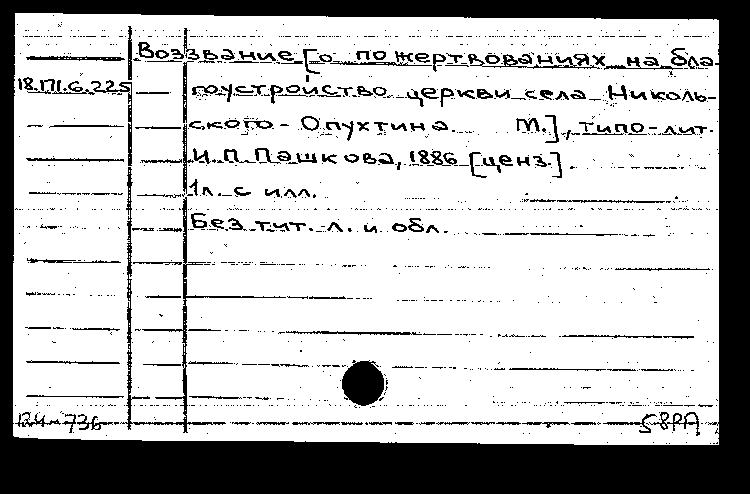 Воззвание [о пожертвованиях на бла-
18.171.6.225 гоустройство церкви села Николь-
ского-Опухтина. М.], типо-лит.
И.П. Пашкова, 1886 [ценз.].
1 л. с илл.
Без тит. л. и обл.
124-736 58РА